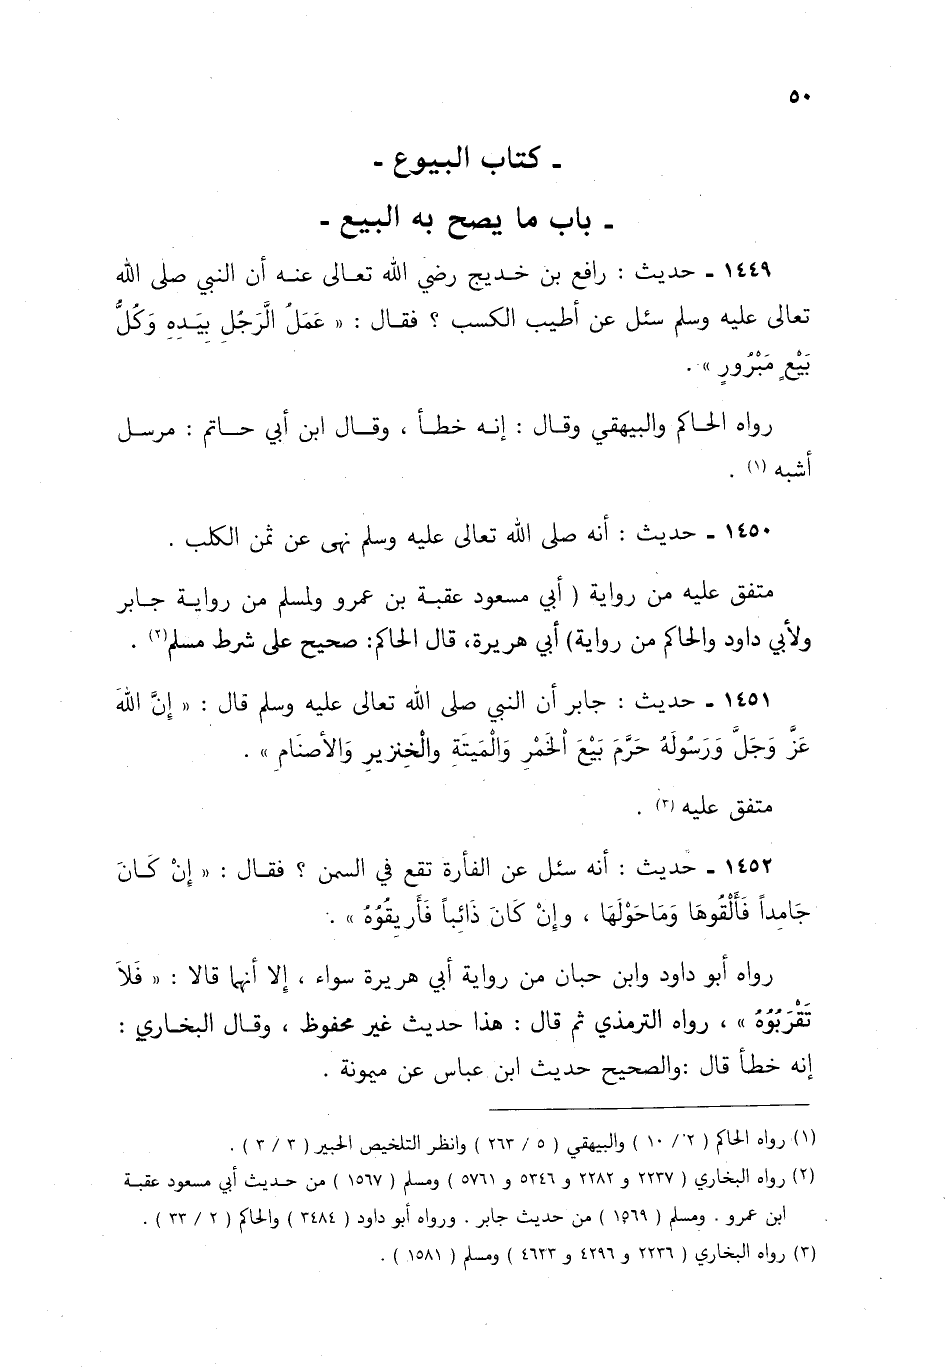 ٥٠
ـ كتاب البيوع ـ
ـ باب ما يصح به البيع ـ
١٤٤٩ ـ حديث : رافع بن خديج رضي الله تعالى عنه أن النبي صلى الله
تعالى عليه وسلم سئل عن أطيب الكسب ؟ فقال : « عَمَلُ الرَّجُلِ بِيَدِهِ وَكُلُّ
بَيْعٍ مَبْرُورٍ » .
رواه الحاكم والبيهقي وقال : إنه خطأ ، وقال ابن أبي حاتم : مرسل
أشبه (١) .
١٤٥٠ ـ حديث : أنه صلى الله تعالى عليه وسلم نهى عن ثمن الكلب .
متفق عليه من رواية ( أبي مسعود عقبة بن عمرو ولمسلم من رواية جابر
ولأبي داود والحاكم من رواية) أبي هريرة، قال الحاكم: صحيح على شرط مسلم(٢) .
١٤٥١ ـ حديث : جابر أن النبي صلى الله تعالى عليه وسلم قال : « إِنَّ اللهَ
عَزَّ وَجَلَّ وَرَسُولَهُ حَرَّمَ بَيْعَ الْخَمْرِ وَالْمَيتَةِ والْخِنزيرِ وَالأصنَامِ » .
متفق عليه (٣) .
١٤٥٢ ـ حديث : أنه سئل عن الفأرة تقع في السمن ؟ فقال : « إِنْ كَانَ
جَامِداً فَأَلْقُوهَا وَمَاحَوْلَهَا ، وإِنْ كَانَ ذَائِباً فَأَرِيقُوُهُ » .
رواه أبو داود وابن حبان من رواية أبي هريرة سواء ، إلا أنهما قالا : « فَلاَ
تَقْرَبُوُهُ » ، رواه الترمذي ثم قال : هذا حديث غير محفوظ ، وقال البخاري :
إنه خطأ قال :والصحيح حديث ابن عباس عن ميمونة .
(١) رواه الحاكم ( ٢ / ١٠ ) والبيهقي ( ٥ / ٢٦٣ ) وانظر التلخيص الحبير ( ٣ / ٣ ) .
(٢) رواه البخاري ( ٢٢٣٧ و ٢٢٨٢ و ٥٣٤٦ و ٥٧٦١ ) ومسلم ( ١٥٦٧ ) من حديث أبي مسعود عقبة
ابن عمرو . ومسلم ( ١٥٦٩ ) من حديث جابر . ورواه أبو داود ( ٣٤٨٤ ) والحاكم ( ٢ / ٣٣ ) .
(٣) رواه البخاري ( ٢٢٣٦ و ٤٢٩٦ و ٤٦٣٣ ) ومسلم ( ١٥٨١ ) .